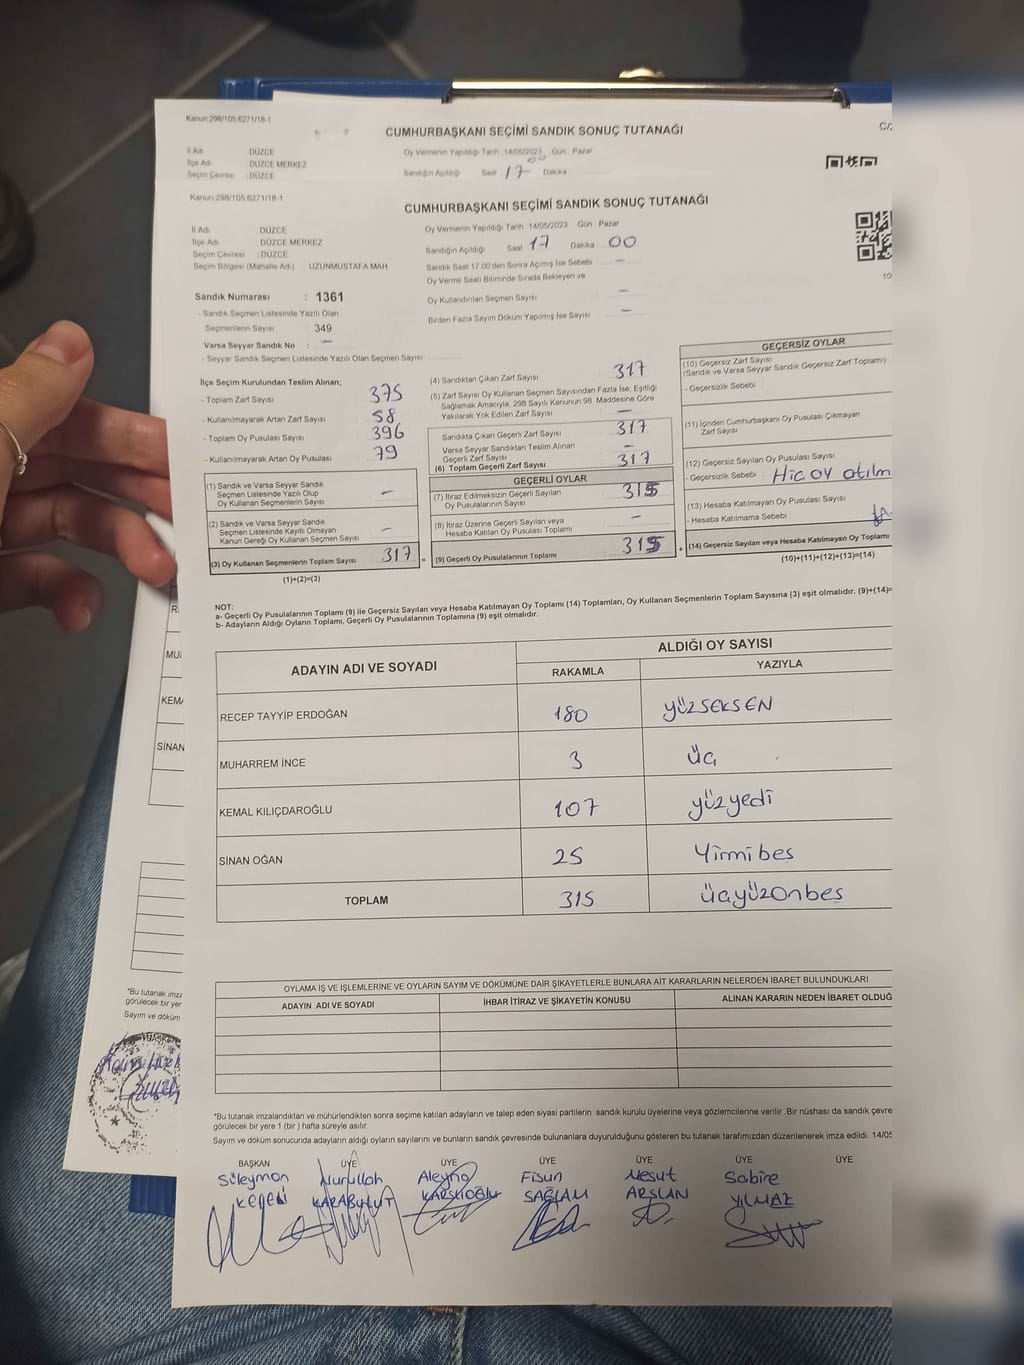 Kanun:298/105.6271/18-1
CUMHURBAŞKANI SEÇİMİ SANDIK SONUÇ TUTANAĞI
İl Adı : DÜZCE
İlçe Adı : DÜZCE MERKEZ
Seçim Çevresi : DÜZCE
Oy Vermenin Yapıldığı Tarih :14/05/2023 Gün : Pazar
Sandığın Açıldığı Saat 17 00 Dakika
Kanun:298/105.6271/18-1
CUMHURBAŞKANI SEÇİMİ SANDIK SONUÇ TUTANAĞI
İl Adı : DÜZCE
İlçe Adı : DÜZCE MERKEZ
Seçim Çevresi : DÜZCE
Seçim Bölgesi (Mahalle Adı) : UZUNMUSTAFA MAH.
Oy Vermenin Yapıldığı Tarih : 14/05/2023 Gün : Pazar
Sandığın Açıldığı Saat 17 Dakika 00
Sandık Saat 17:00'den Sonra Açılmış İse Sebebi : —
Oy Verme Saati Bitiminde Sırada Bekleyen ve
Oy Kullandırılan Seçmen Sayısı : —
Birden Fazla Sayım Döküm Yapılmış İse Sayısı : —
Sandık Numarası : 1361
- Sandık Seçmen Listesinde Yazılı Olan
Seçmenlerin Sayısı : 349
Varsa Seyyar Sandık No : —
- Seyyar Sandık Seçmen Listesinde Yazılı Olan Seçmen Sayısı
İlçe Seçim Kurulundan Teslim Alınan;
- Toplam Zarf Sayısı : 375
- Kullanılmayarak Artan Zarf Sayısı : 58
- Toplam Oy Pusulası Sayısı : 396
- Kullanılmayarak Artan Oy Pusulası : 79
(1) Sandık ve Varsa Seyyar Sandık
Seçmen Listesinde Yazılı Olup
Oy Kullanan Seçmenlerin Sayısı : —
(2) Sandık ve Varsa Seyyar Sandık
Seçmen Listesinde Kayıtlı Olmayan
Kanun Gereği Oy Kullanan Seçmen Sayısı : —
(3) Oy Kullanan Seçmenlerin Toplam Sayısı : 317 =
(1)+(2)=(3)
(4) Sandıktan Çıkan Zarf Sayısı : 317
(5) Zarf Sayısı Oy Kullanan Seçmen Sayısından Fazla İse, Eşitliği
Sağlamak Amacıyla, 298 Sayılı Kanunun 98. Maddesine Göre
Yakılarak Yok Edilen Zarf Sayısı : —
Sandıkta Çıkan Geçerli Zarf Sayısı : 317
Varsa Seyyar Sandıktan Teslim Alınan
Geçerli Zarf Sayısı : —
(6) Toplam Geçerli Zarf Sayısı : 317
GEÇERLİ OYLAR
(7) İtiraz Edilmeksizin Geçerli Sayılan
Oy Pusulalarının Sayısı : 315
(8) İtiraz Üzerine Geçerli Sayılan veya
Hesaba Katılan Oy Pusulası Toplamı : —
(9) Geçerli Oy Pusulalarının Toplamı : 315 +
GEÇERSİZ OYLAR
(10) Geçersiz Zarf Sayısı
(Sandık ve Varsa Seyyar Sandık Geçersiz Zarf Toplamı)
- Geçersizlik Sebebi :
(11) İçinden Cumhurbaşkanı Oy Pusulası Çıkmayan
Zarf Sayısı
(12) Geçersiz Sayılan Oy Pusulası Sayısı
- Geçersizlik Sebebi : Hiç oy atılm
(13) Hesaba Katılmayan Oy Pusulası Sayısı
- Hesaba Katılmama Sebebi :
(14) Geçersiz Sayılan veya Hesaba Katılmayan Oy Toplamı
(10)+(11)+(12)+(13)=(14)
NOT:
a- Geçerli Oy Pusulalarının Toplamı (9) ile Geçersiz Sayılan veya Hesaba Katılmayan Oy Toplamı (14) Toplamları, Oy Kullanan Seçmenlerin Toplam Sayısına (3) eşit olmalıdır. (9)+(14)=
b- Adayların Aldığı Oyların Toplamı, Geçerli Oy Pusulalarının Toplamına (9) eşit olmalıdır.
ADAYIN ADI VE SOYADI
ALDIĞI OY SAYISI
RAKAMLA YAZIYLA
RECEP TAYYİP ERDOĞAN 180 yüzSEKSEN
MUHARREM İNCE 3 üç
KEMAL KILIÇDAROĞLU 107 yüzyedi
SİNAN OĞAN 25 Yirmibeş
TOPLAM 315 üçyüzonbeş
OYLAMA İŞ VE İŞLEMLERİNE VE OYLARIN SAYIM VE DÖKÜMÜNE DAİR ŞİKAYETLERLE BUNLARA AİT KARARLARIN NELERDEN İBARET BULUNDUKLARI
ADAYIN ADI VE SOYADI İHBAR İTİRAZ VE ŞİKAYETİN KONUSU ALINAN KARARIN NEDEN İBARET OLDUĞ
*Bu tutanak imzalandıktan ve mühürlendikten sonra seçime katılan adayların ve talep eden siyasi partilerin sandık kurulu üyelerine veya gözlemcilerine verilir .Bir nüshası da sandık çevre
görülecek bir yere 1 (bir ) hafta süreyle asılır.
Sayım ve döküm sonucunda adayların aldığı oyların sayılarını ve bunların sandık çevresinde bulunanlara duyurulduğunu gösteren bu tutanak tarafımızdan düzenlenerek imza edildi. 14/05
BAŞKAN ÜYE ÜYE ÜYE ÜYE ÜYE ÜYE
Süleyman Nurullah Aleyna Fisun Mesut Sabire
KARABULUT KARSLIOĞLU SAĞLAM ARSLAN YILMAZ
MU
KEMA
SİNAN
*Bu tutanak imza
görülecek bir yer
Sayım ve döküm